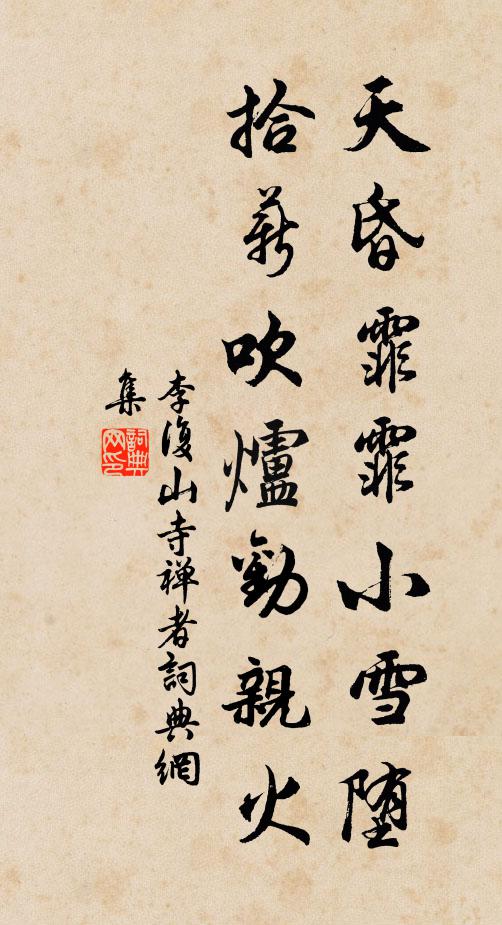 天昏霏霏小雪堕
拾薪吹爐勸親火
李復山寺禅者詞典網
集
詞典
网印